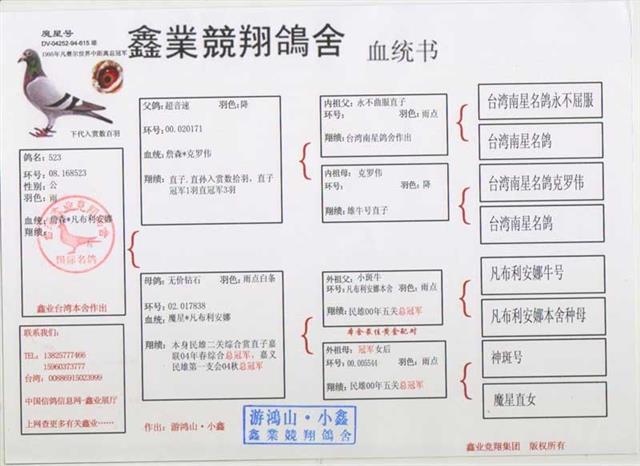 魔星号
DV-04252-94-615 雄
1995年凡赛尔世界中距离总冠军
鑫業競翔鴿舍 血统书
下代入赏数百羽
鸽名：523
环号：08.168523
性别：公
羽色：雨
血统：詹森*凡布利安娜
翔绩：
国际名鸽
鑫业台湾本舍作出
联系我们：
TEL：13825777466
15960373777
台湾：00886915023999
中国信鸽信息网-鑫业展厅
上网查更多有关鑫业……
父鸽：超音速 羽色：降
环号：00.020171
血统：詹森*克罗伟
翔绩：直子、直孙入赏数拾羽，直子
冠军1羽直冠军3羽
母鸽：无价钻石 羽色：雨点白条
环号：02.017838
血统：魔星*凡布利安娜
翔绩：本身民雄二关综合赏直子嘉
联04年春综合总冠军，嘉义
民雄第一支会04秋总冠军
作出：游鸿山·小鑫
游鴻山·小鑫
鑫業競翔鴿舍
内祖父：永不曲服直子
环号： 羽色：雨点
翔绩：台湾南星名鸽舍作出
内祖母：克罗伟
环号： 羽色：降
翔绩：雄牛号直子
外祖父：小斑牛
环号：凡布利安娜本舍 羽色：雨点
翔绩：民雄00年五关总冠军
本舍最佳黄金配对
外祖母：冠军女后
环号：00.005544 羽色：雨点
翔绩：民雄00年五关总冠军
台湾南星名鸽永不屈服
台湾南星名鸽
台湾南星名鸽克罗伟
台湾南星名鸽
凡布利安娜牛号
凡布利安娜本舍种母
神斑号
魔星直女
鑫业竞翔集团 版权所有